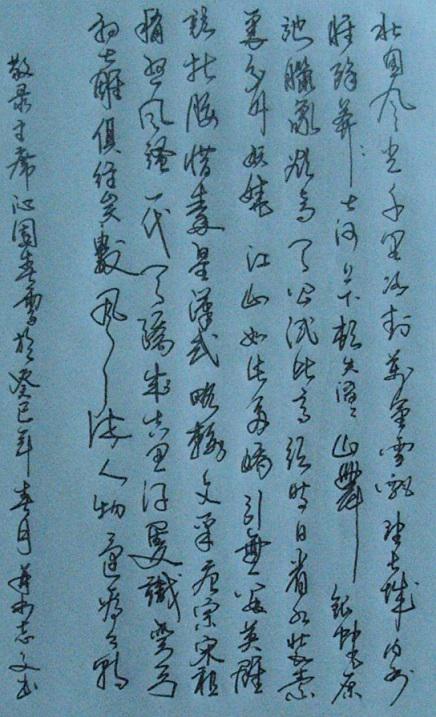 北国风光千里冰封万里雪飘望长城内外
惟馀莽莽大河上下顿失滔滔山舞银蛇原
驰蠟象欲与天公试比高须晴日看红装素
裹分外妖娆江山如此多娇引無数英雄
竞折腰惜秦皇汉武略输文采唐宗宋祖
稍逊风骚一代天骄成吉思汗隻識弯弓
射大雕俱往矣數风流人物还看今朝
敬录主席沁园春雪於癸巳年春月志文书